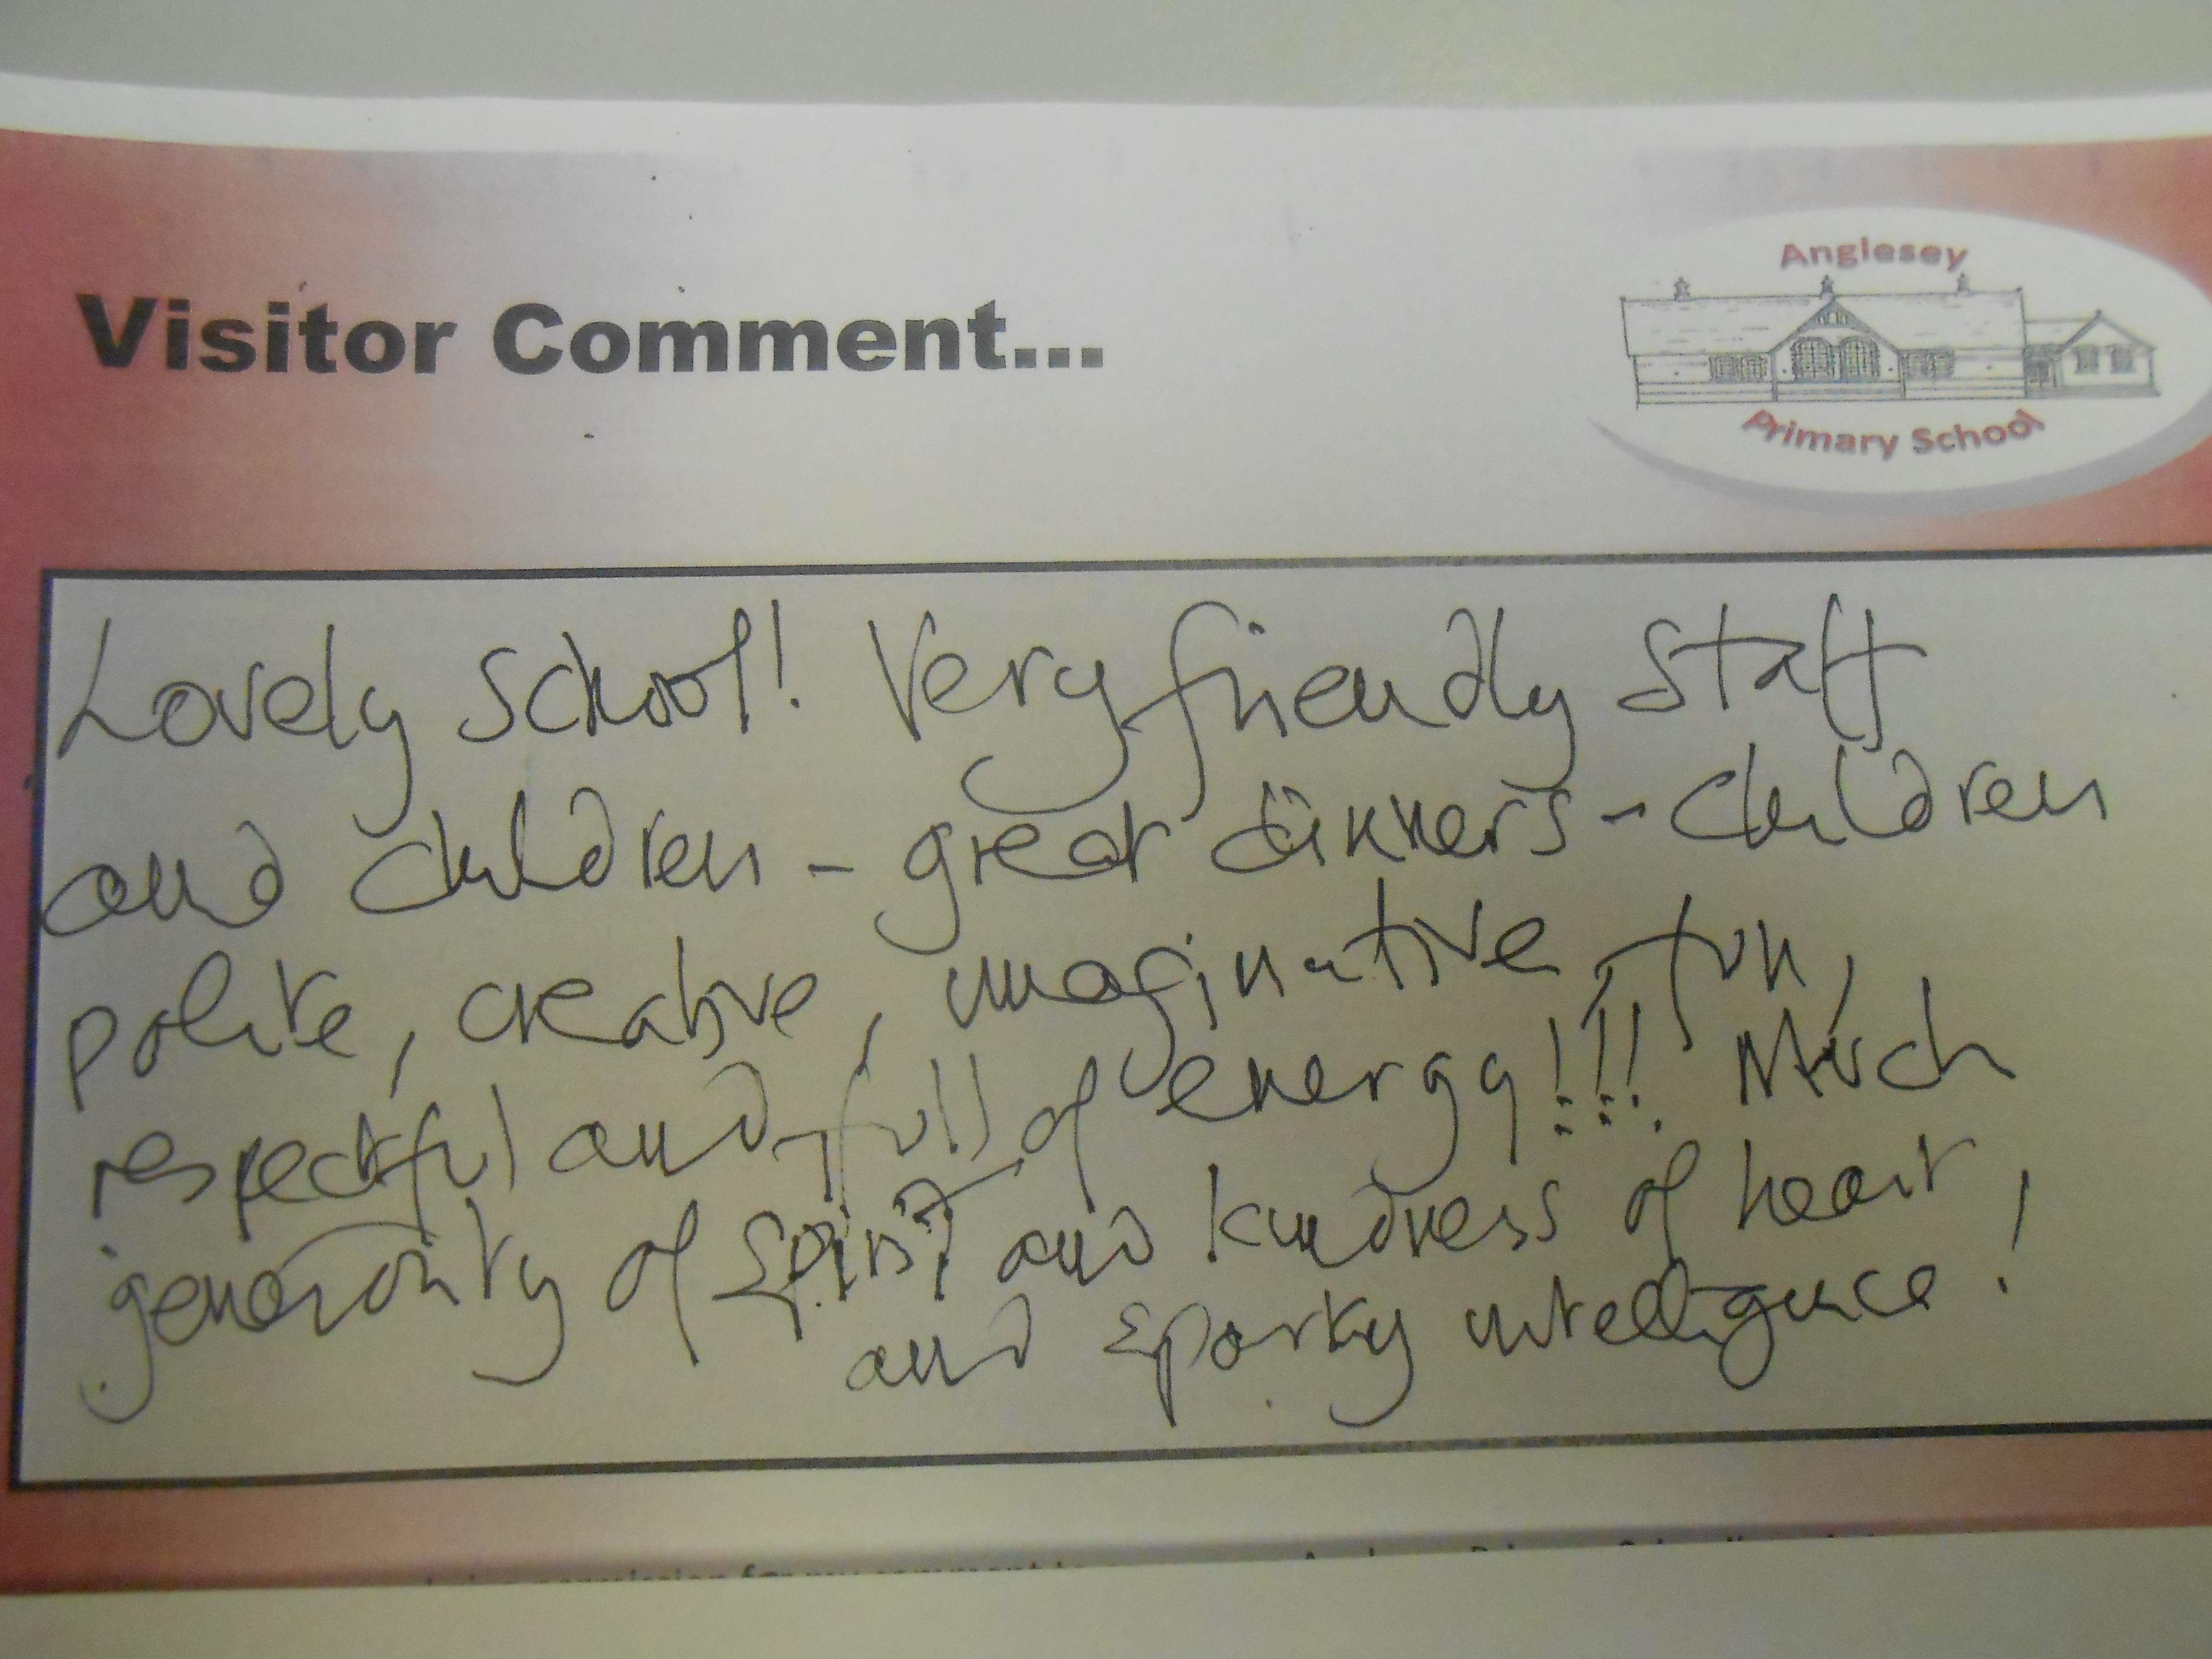 Anglesey
Primary School
Visitor Comment...
Lovely School! Very friendly Staff
and children - great dinners - children
polite, creative, imaginative, fun,
respectful and full of energy!!! Much
generosity of spirit and kindness of heart,
and sparky intelligence!
permission for my comment to